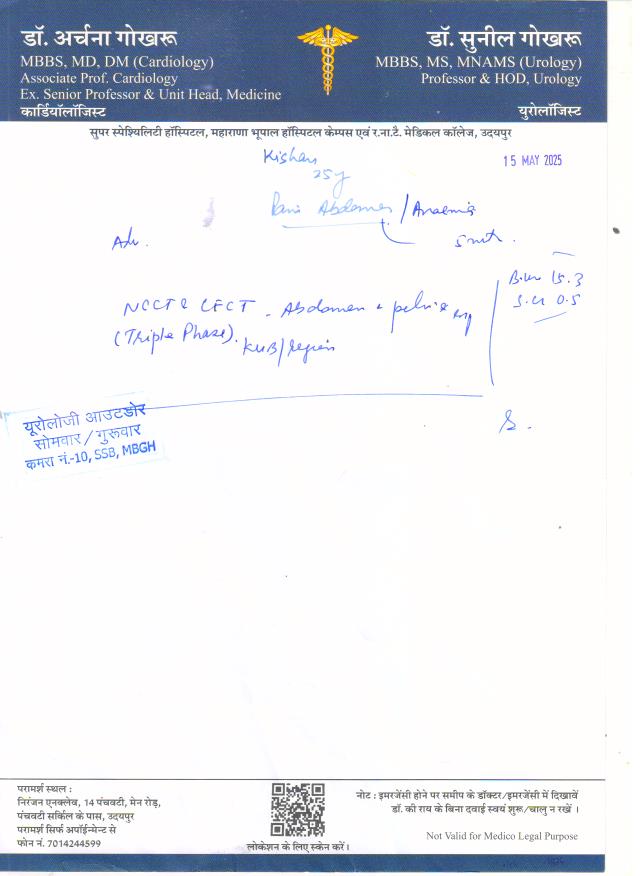 डॉ. अर्चना गोखरू
MBBS, MD, DM (Cardiology)
Associate Prof. Cardiology
Ex. Senior Professor & Unit Head, Medicine
कार्डियॉलॉजिस्ट
डॉ. सुनील गोखरू
MBBS, MS, MNAMS (Urology)
Professor & HOD, Urology
यूरोलॉजिस्ट
सुपर स्पेश्यिलिटी हॉस्पिटल, महाराणा भूपाल हॉस्पिटल केम्पस एवं र.ना.टै. मेडिकल कॉलेज, उदयपुर
Kishan
15 MAY 2025
25y
Pain Abdomen / Anaemia
Adv.
B.Ur 15.3
S.Cr 0.5
NCCT & CECT - Abdomen & pelvis
(Triple Phase). KUB/region
यूरोलोजी आउटडोर
सोमवार / गुरूवार
कमरा नं.-10, SSB, MBGH
परामर्श स्थल :
निरंजन एनक्लेव, 14 पंचवटी, मेन रोड़,
पंचवटी सर्किल के पास, उदयपुर
परामर्श सिर्फ अपॉईन्मेन्ट से
फोन नं. 7014244599
लोकेशन के लिए स्केन करें।
नोट : इमरजेंसी होने पर समीप के डॉक्टर/इमरजेंसी में दिखावें
डॉ. की राय के बिना दवाई स्वयं शुरू/चालु न रखें ।
Not Valid for Medico Legal Purpose